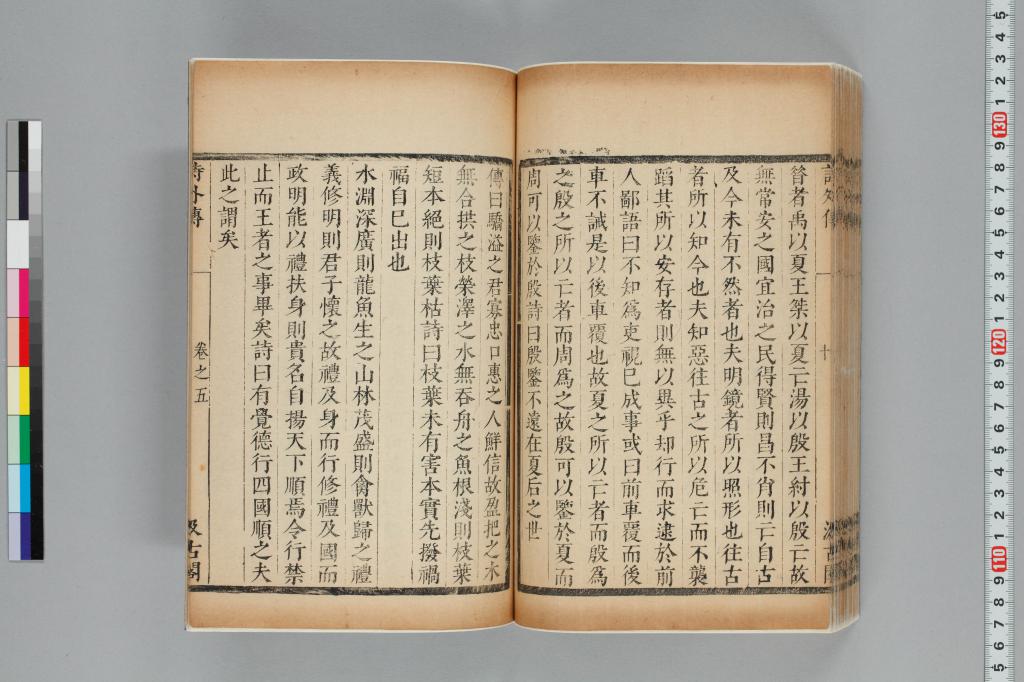 昔者禹以夏王桀以夏亡湯以殷王紂以殷亡故
無常安之國宜治之民得賢則昌不肖則亡自古
及今未有不然者也夫明鏡者所以照形也往古
者所以知今也夫知惡往古之所以危亡而不襲
蹈其所以安存者則無以異乎却行而求逮於前
人鄙語曰不知爲吏視已成事或曰前車覆而後
車不誡是以後車覆也故夏之所以亡者而殷爲
之殷之所以亡者而周爲之故殷可以鑒於夏而
周可以鑒於殷詩曰殷鑒不遠在夏后之世
傳曰驕溢之君寡忠口惠之人鮮信故盈把之木
無合拱之枝榮澤之水無吞舟之魚根淺則枝葉
短本絕則枝葉枯詩曰枝葉未有害本實先撥禍
福自已出也
水淵深廣則龍魚生之山林茂盛則禽獸歸之禮
義修明則君子懷之故禮及身而行修禮及國而
政明能以禮扶身則貴名自揚天下順焉令行禁
止而王者之事畢矣詩曰有覺德行四國順之夫
此之謂矣
詩外傳 卷之五 汲古閣